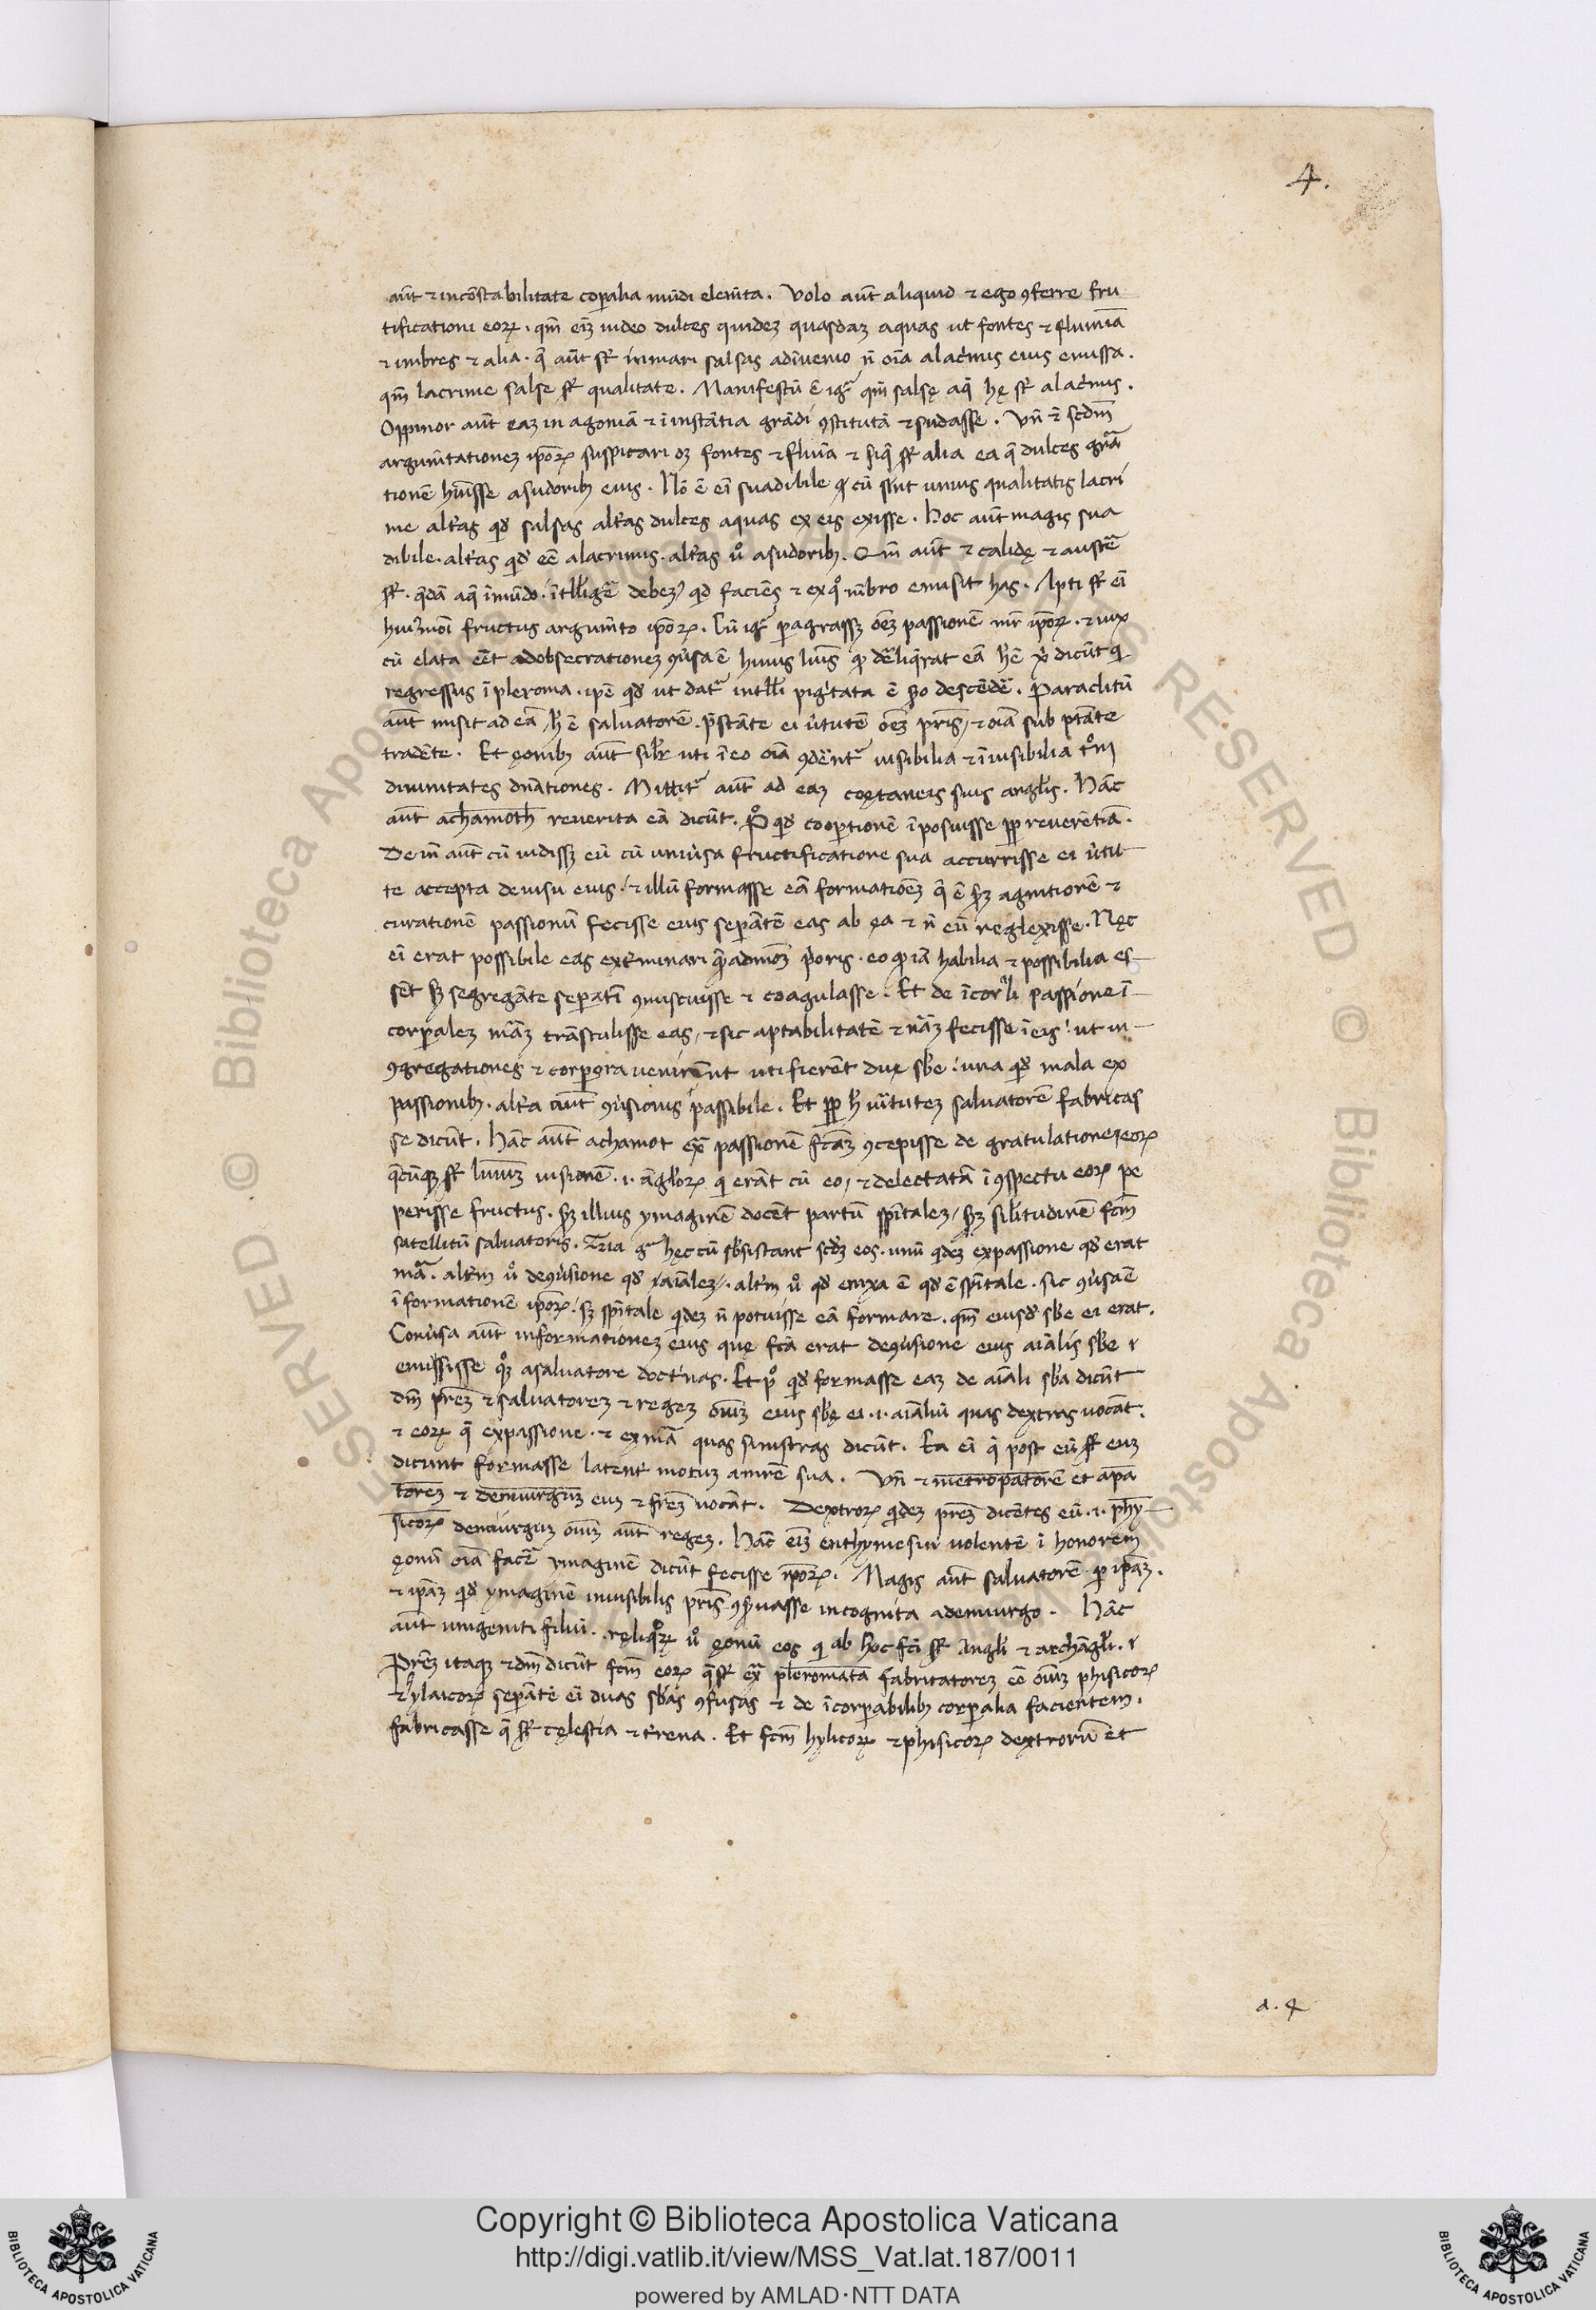 4.
aūt ⁊ incōstabilitate coꝑalia mūdi elem̄ta. Volo aūt aliquid ⁊ ego ꝯferre fru
tificationi eoꝝ. qm̄ eīz uideo dulces quidez quasdaz aquas ut fontes ⁊ flumiā
⁊ imbres ⁊ alia. q̄ aūt st̄ in mari salsas adīuenio n̄ oīa a lac̓mis eius emissa.
qm̄ lacrime salse st̄ qualitate. Manifestū ē igr̃ qm̄ salsę aq̄ hę st̄ a lac̓mis.
Oppinor aūt eaz in agoniā ⁊ ī instātia grādi ꝯstitutā ⁊ sudasse. Vn̄ ⁊ scdm̄
argum̄tationez ipōꝝ suspicari oꝫ fontes ⁊ fluīa ⁊ siq̄ st̄ alia ea q̄ dulces gn̄ā
tionē hūisse a sudoribꝫ eius. Nō ē eī suadibile ꝙ cū sint unius qualitatis lacri
me alt̓as qd̓ salsas alt̓as dulces aquas ex eis exisse. Hoc aūt magis sua
dibile. alt̓as qd̓ eē a lacrimis. alt̓as u̓o a sudoribꝫ. Qm̄ aūt ⁊ calidę ⁊ austē
st̄. q̄dā aq̄ ī mūdo. ītllig̓e debez qd̓ faciēs ⁊ ex qͦ mēbro emisit has. Apti st̄ eī
hui̓moi fructus argum̄to ipōꝝ. Cū igr̃ ꝑagrassz oēz passionē mr̄ ipōꝝ. ⁊ uix
cū elata eēt ad obsecrationez ꝯu̓sa ē huius lūis ꝙ de̓liq̓rat eā h̄ ē xp̄i dicūt q
regressus ī pleroma. ipē qd̓ ut dat̃ intlli pig̓tata ē sꝫo descēde̓. Paraclitū
aūt misit ad eā h̄ ē saluatorē. p̄stāte ei u̓tutē oēz pr̄is, ⁊ oīa sub ptāte
tradēte. Et ęonibꝫ aūt silr̄ uti ī eo oīa ꝯde̓nt̃ uisibilia ⁊ īuisibilia tͦni
diuinitates dn̄ationes. Mittit̃ aūt ad eaz coętaneis suis angl̓is. Hāc
aūt achamoth reuerita eā dicūt. Pͦ qd̓ coop̓tionē īposuisse ꝓp reuerētiā.
Dein̄ aūt cū uidissz eū cū uniu̓sa fructificatione sua accurrisse ei u̓tu-
te accepta de uisu eius. ⁊ illū formasse eā formatiōez q̄ ē scz agnitionē ⁊
curationē passionū fecisse eius seꝑātē eas ab ęa ⁊ n̄ eū neglexisse. Nęc
eī erat possibile eas ext̓minari q̄admōz p̓oris. eo ꝙ iā habilia ⁊ possibilia es-
sēt sꝫ segregāte seꝑatī ꝯmiscuisse ⁊ coagulasse. Et de īcorꝑli passione ī-
corꝑalez māz trāstulisse eas, ⁊ sic aptabilitatē ⁊ nāz fecisse ī eis. ut in-
ꝯgregationes ⁊ corpora uenirēnt uti fierēt duę sbē. una qd̓ mala ex
passionibꝫ. alt̓a aūt ꝯu̓sionis passibile. Et ꝓp h̄ uītutez saluatorē fabricas
se dicūt. Hāc aūt achamot ex̄ passionē fc̄āz ꝯcepisse de gratulatione eoꝝ
q̄cūqꝫ st̄ lūiuz uisionē. .i. āgl̓oꝝ q erāt cū eo, ⁊ delectatā ī ꝯspectu eoꝝ pe
perisse fructus. scz illius ymaginē docēt partū spītalez, scz silitudinē fcm̄
satellitū saluatoris. Tria gͦ hęc cū sbsistant scdz eos. unū qdez ex passione qd̓ erat
mā. alt̓m u̓o de ꝯu̓sione qd̓ aīalez. alt̓m u̓o qd̓ enixa ē qd̓ ē spītale. sic ꝯu̓sa ē
ī formationē ipōꝝ. sꝫ spītale qdez n̄ potuisse eā formare. qm̄ eiusd̓ sbē ei erat.
Conu̓sa aūt in formationez eius que fcā erat de ꝯu̓sione eius aīalis sbē ⁊
emisisse qͦꝫ a saluatore doct̓nas. Et pͦ qd̓ formasse eaz de aīali sba dicūt
dm̄ prēz ⁊ saluatorez ⁊ regez oīuz eius sbę ei .i. aīaliū quas dextras uocāt.
⁊ eoꝝ q̄ ex passione. ⁊ ex mā quas sinistras dicūt. Ea eī q̄ post eū st̄ eum
dicunt formasse latent̓ motuz a mr̄ē sua. Vn̄ ⁊ metropatorē et apa
torez ⁊ demiurguz euz ⁊ frēz uocāt. Dextroꝝ qdez prēz dicētes eū .i. phy-
sicoꝝ demiurguz oīuz aūt regez. Hāc eīz enthymesin uolentē ī honorem
ęonū oīa face̓ ymaginē dicūt fecisse ipōꝝ. Magis aūt saluatorē ꝑ ipāz.
⁊ ipāz qd̓ ymaginē inuisibilis pr̄is ꝯs̓uasse incognita a demiurgo. Hāc
aūt unigeniti filii. ręliqͦꝝ u̓o ęonū eos q ab hoc fc̄i st̄ Angl̓i ⁊ archāgl̓i. ⁊
Prēz itaqꝫ ⁊ dm̄ dicūt fcm̄ eoꝝ q̄ st̄ ex̄ pleromata fabricatorez eē oīuz phisicoꝝ
⁊ hylaicoꝝ seꝑātē eī duas sbās ꝯfusas ⁊ de īcorꝑabilibꝫ corꝑalia facientem.
fabricasse q̄ st̄ cęlestia ⁊ t̓rena. Et fcm̄ hylicoꝝ ⁊ phisicoꝝ dextroruꝫ et
a. 4
Copyright © Biblioteca Apostolica Vaticana
http://digi.vatlib.it/view/MSS_Vat.lat.187/0011
powered by AMLAD·NTT DATA
BIBLIOTECA APOSTOLICA VATICANA
BIBLIOTECA APOSTOLICA VATICANA